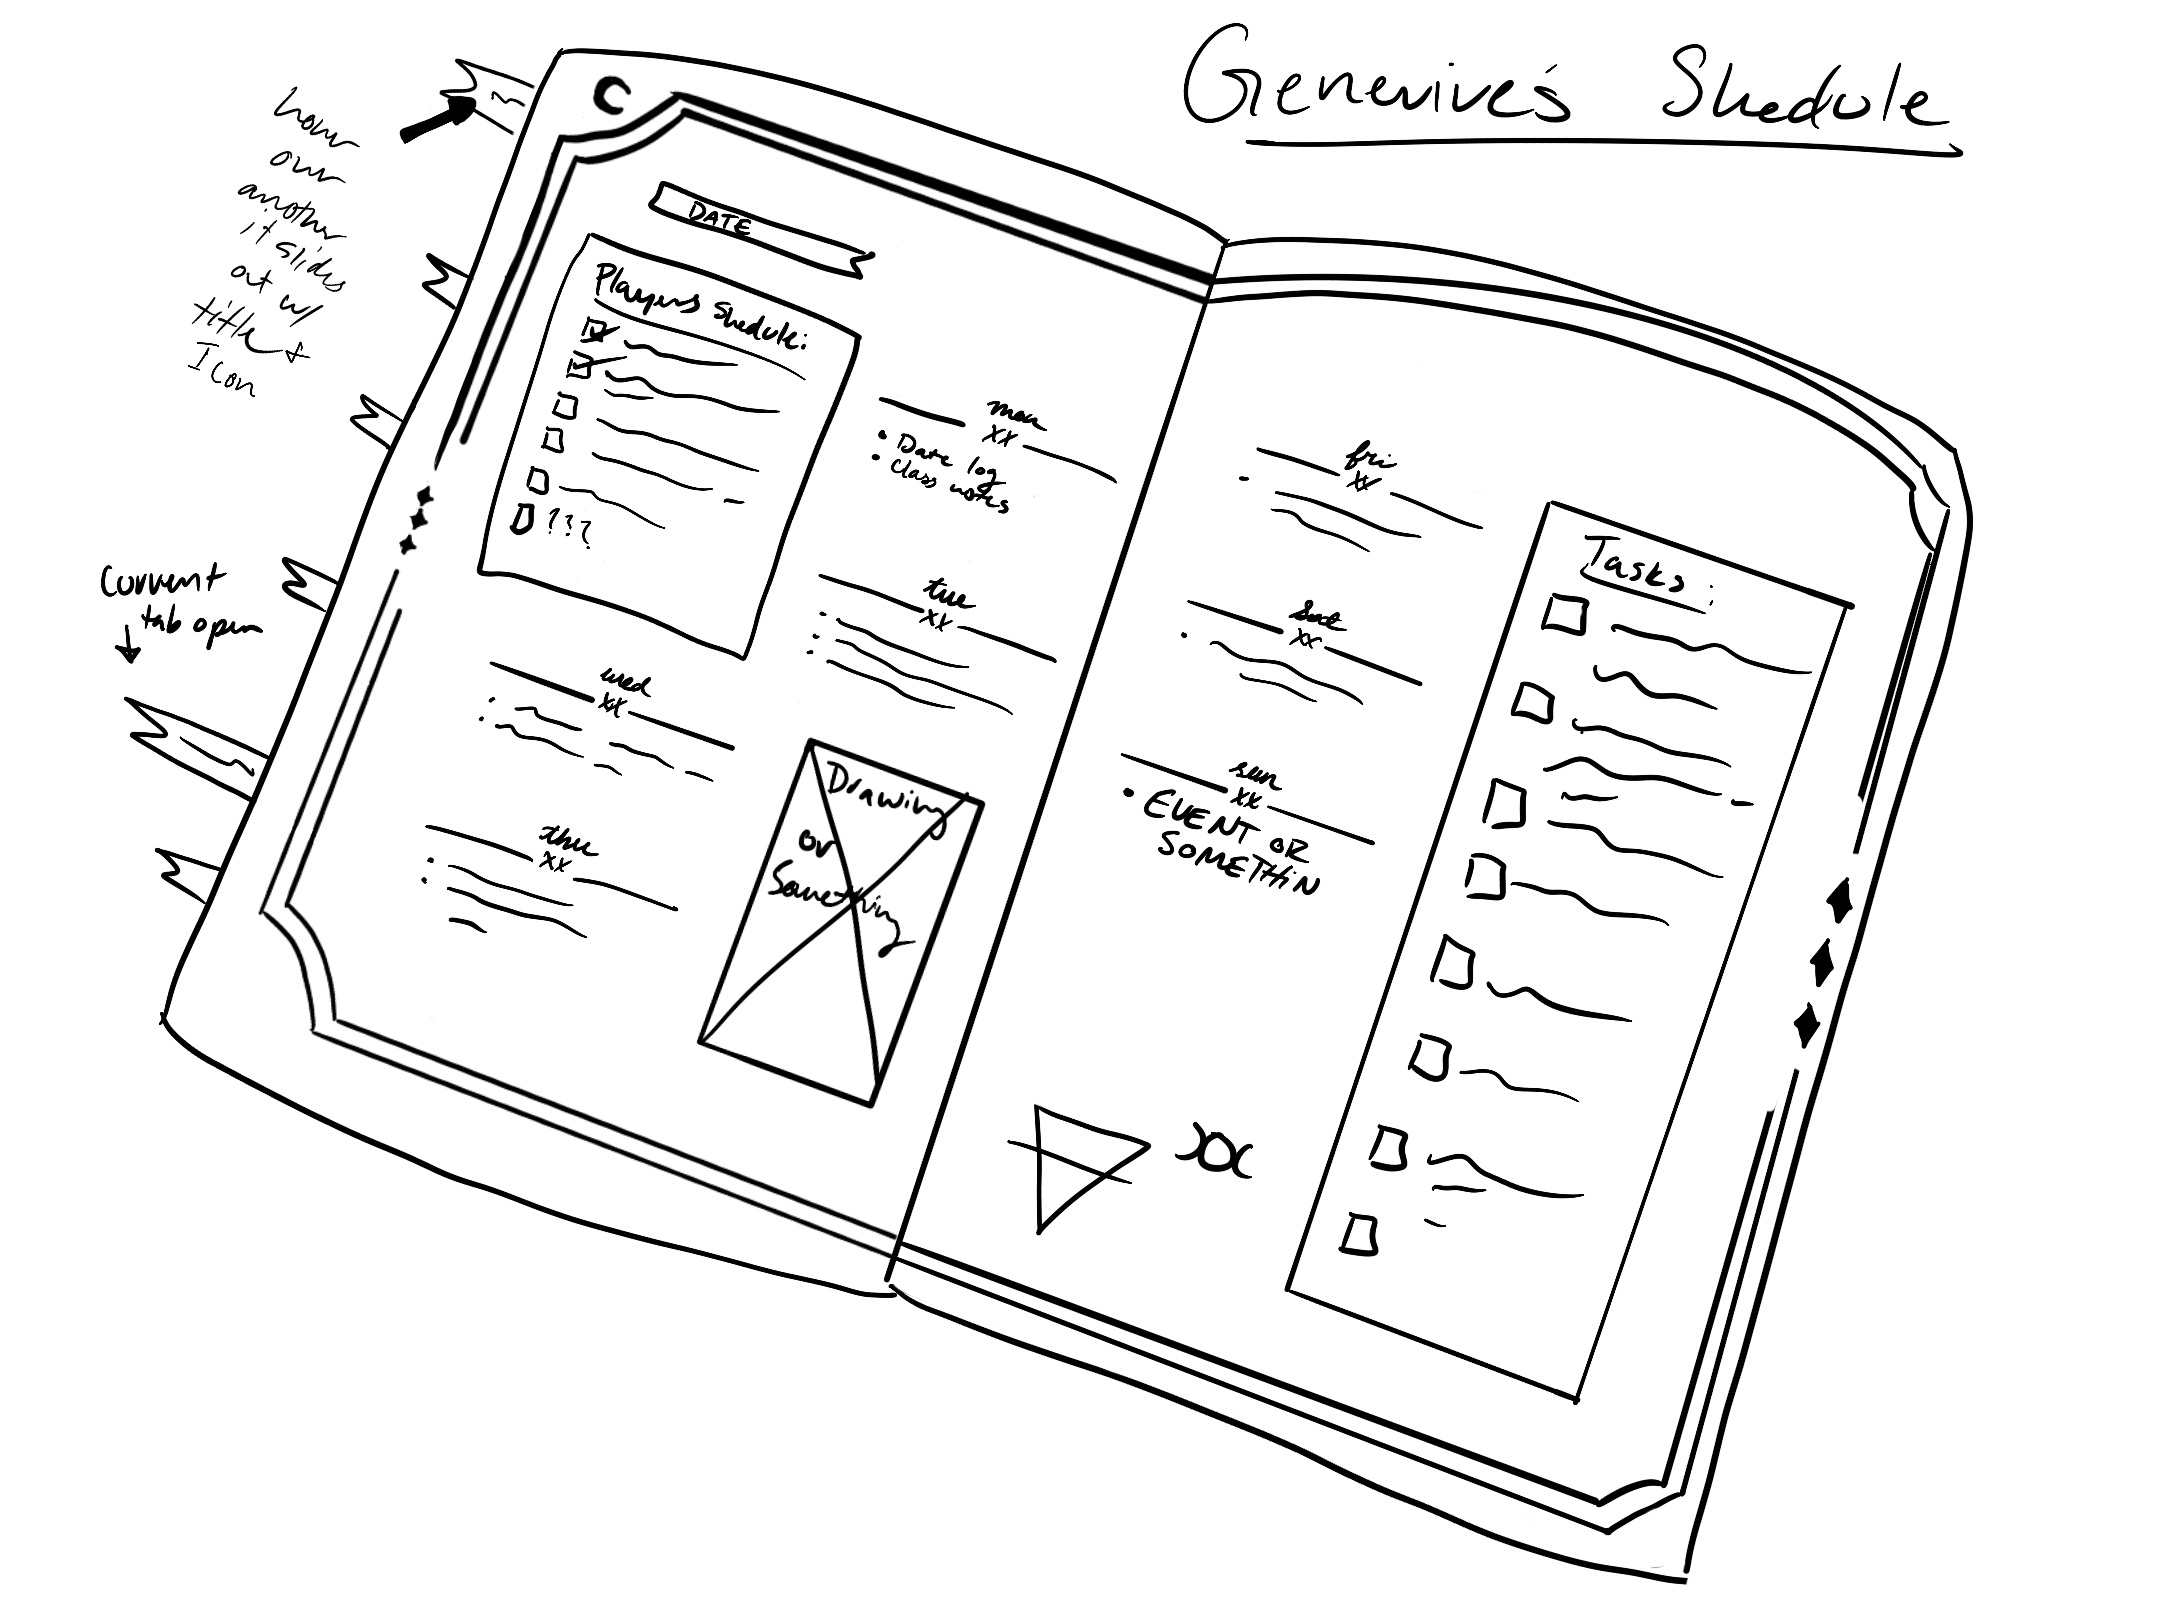 Genevive's Shedule
hover
over
another
it slides
out w/
title &
Icon
Current
tab open
DATE
Players Shedule:
???
mon
xx
• Date log
• Class notes
tue
xx
wed
xx
thu
xx
Drawing
or
Something
fri
xx
sat
xx
sun
xx
• EVENT OR
SOMETHIN
Tasks: